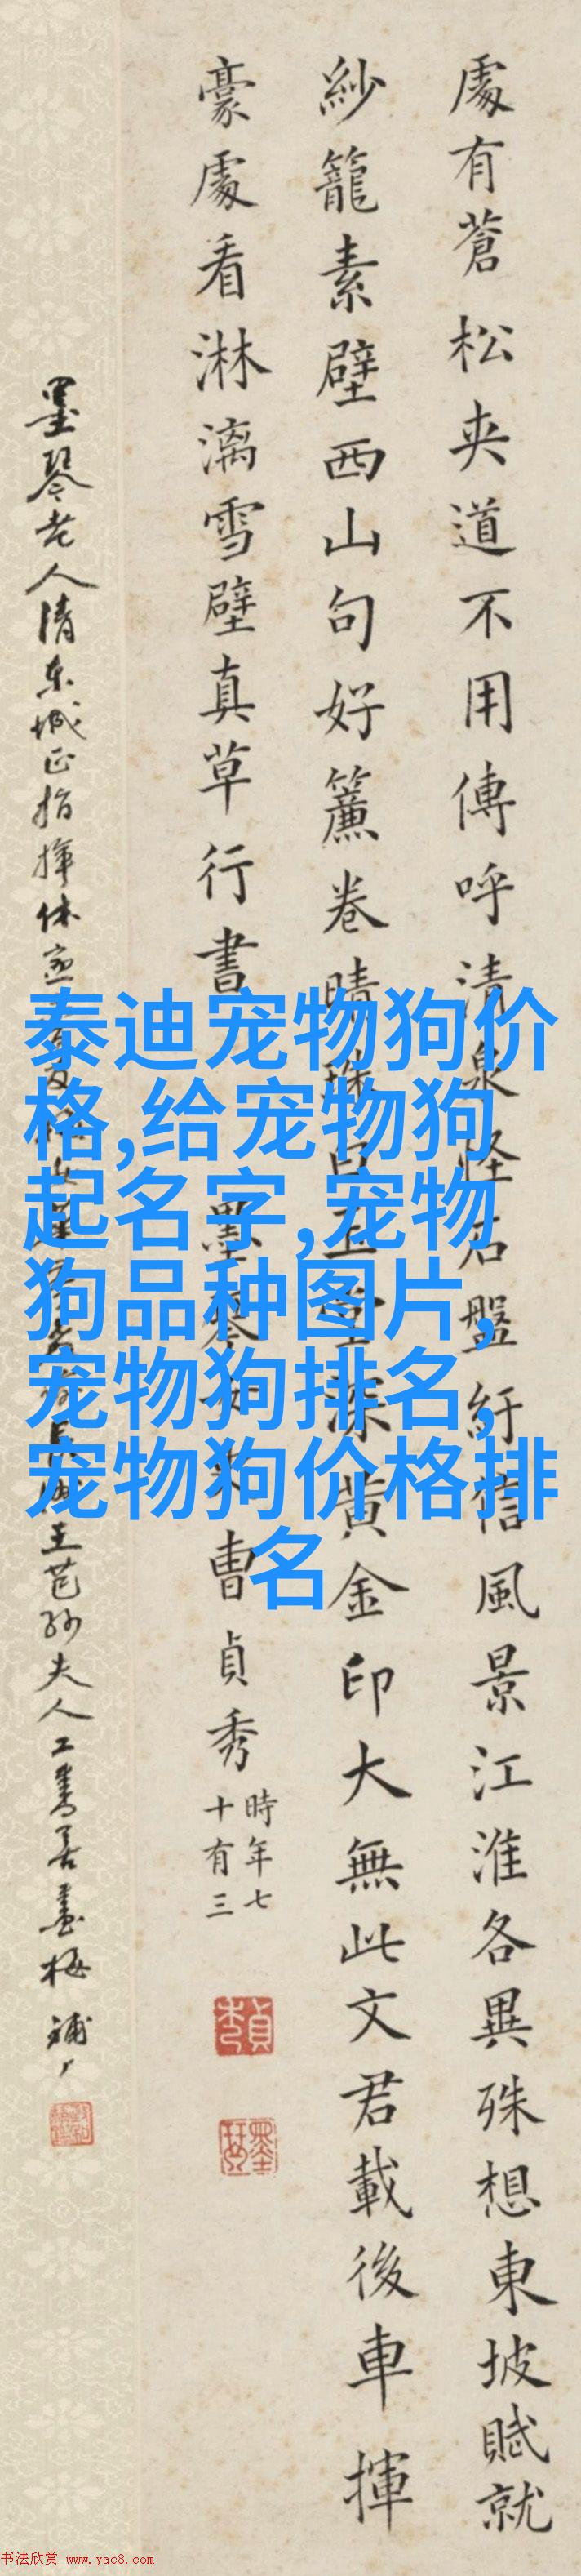 處有蒼松夾道不用傳呼清泉怪石盤紆信風景江淮各異殊想東坡賦就
紗籠素壁西山句好簾卷晴珠白玉堂深黃金印大無此文君載後車揮
豪處看淋漓雪壁真草行書
墨琴女史曹貞秀
時年七
十有三
墨琴老人清東城正指揮休
王芑孙夫人工書善畫梅
泰迪宠物狗价
格,给宠物狗
起名字,宠物
狗品种图片,
宠物狗排名,
宠物狗价格排
名
貞秀
墨琴
书法欣赏 www.yac8.com